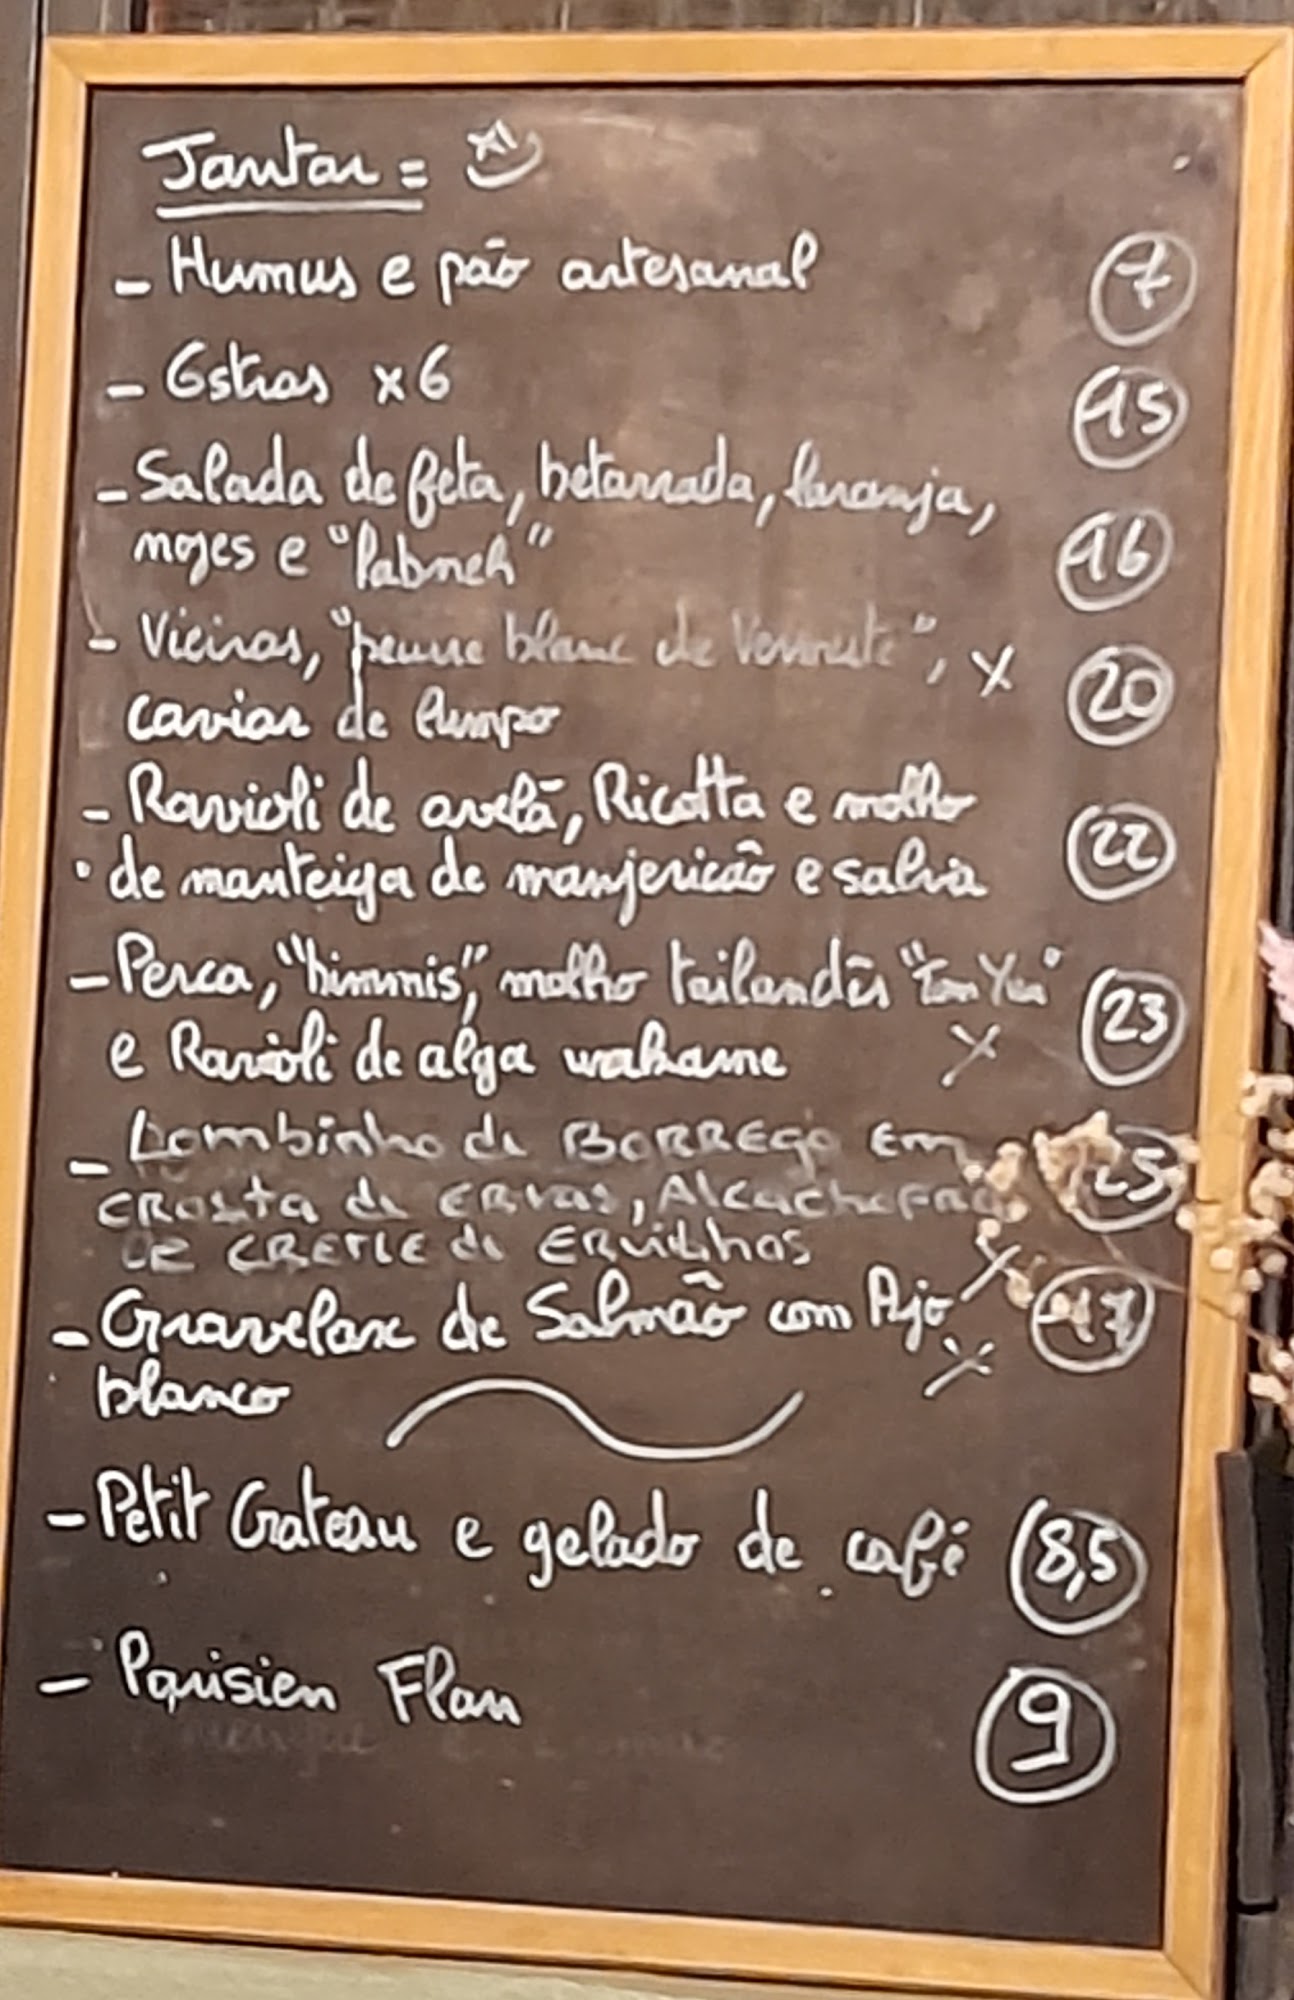 Jantar =
- Humus e pão artesanal 7
- Ostras x6 15
- Salada de feta, betarrada, laranja,
nozes e "labneh" 16
- Vieiras, "beurre blanc de Vermute", x 20
caviar de lumpo
- Ravioli de avelã, Ricotta e molho
de manteiga de manjericão e salvia 22
- Perca, "bimmis", molho tailandês "Tom Yum" 23
e Ravioli de alga wakame x
- Lombinho de BORREGO Em 25
CROSTA de ERVAS, AlcachoFRA
DE CREME de ERvilhas x
- Gravelax de Salmão com Ajo 17
blanco x
- Petit Gateau e gelado de café 8,5
- Parisien Flan 9